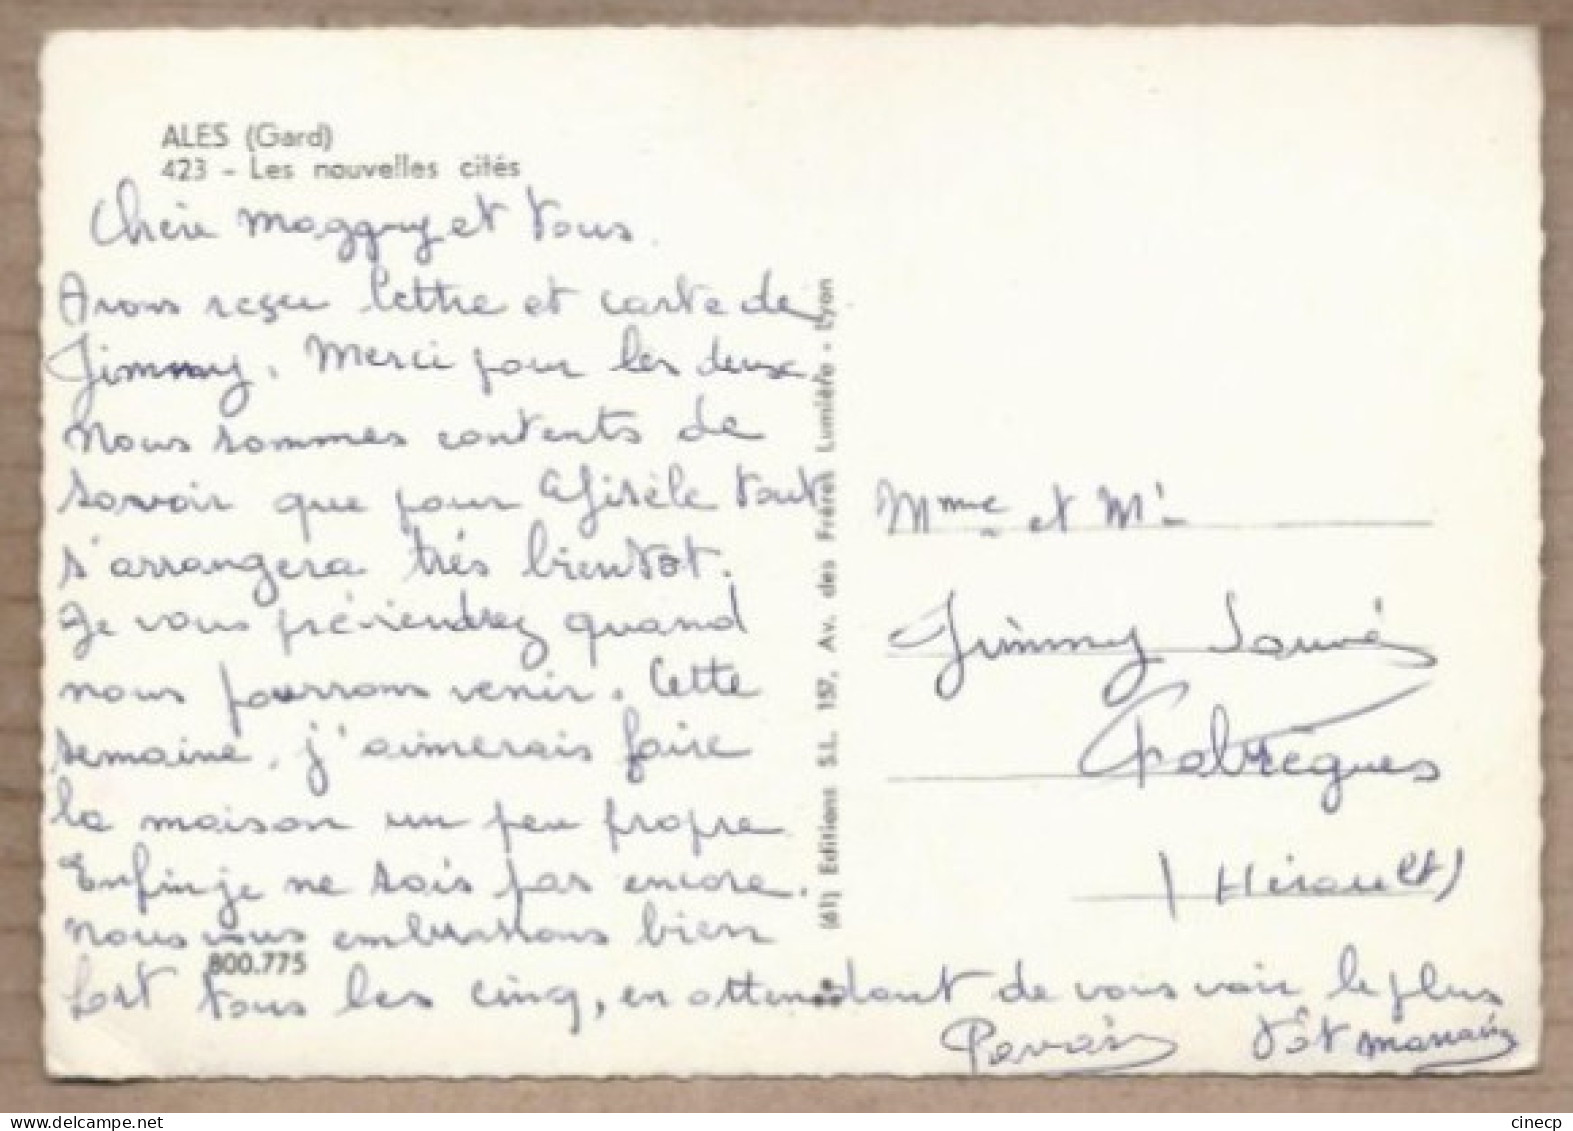 ALES (Gard)
423 - Les nouvelles cités
Chère Magguy et tous.
Avons reçu lettre et carte de
Jimmy. Merci pour les deux
Nous sommes contents de
savoir que pour Gisèle tout
s'arrangera très bientôt.
Je vous préviendrez quand
nous pourrons venir. Cette
semaine, j'aimerais faire
la maison un peu propre
Enfin je ne sais pas encore.
Nous vous embrassons bien
800.775
fort tous les cinq, en attendant de vous voir le plus
tôt
(61) Editions S.L. 157, Av. des Frères Lumière - Lyon
Mme et Mr
Jimmy
Fabrègues
(Hérault)
cinecp